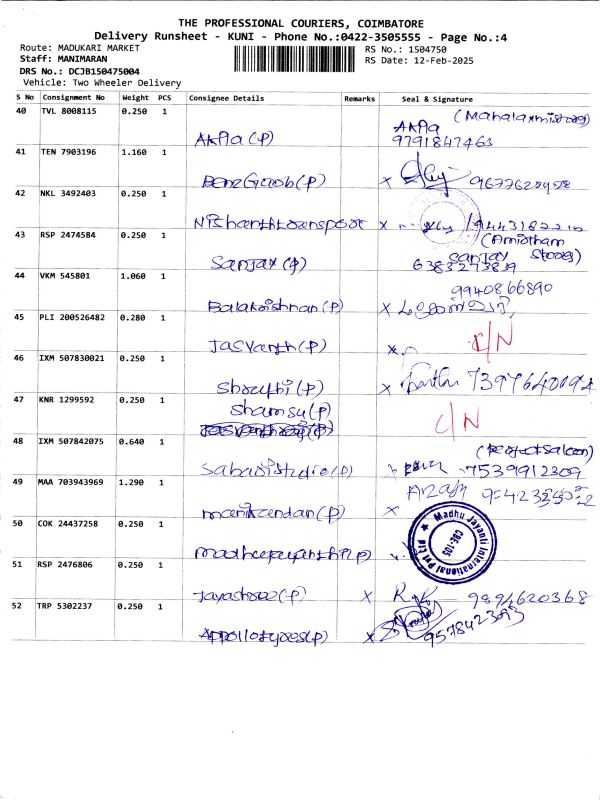 THE PROFESSIONAL COURIERS, COIMBATORE
Delivery Runsheet - KUNI - Phone No.:0422-3505555 - Page No.:4
Route: MADUKARI MARKET
RS No.: 1504750
Staff: MANIMARAN
RS Date: 12-Feb-2025
DRS No.: DCJB150475004
Vehicle: Two Wheeler Delivery
S No Consignment No Weight PCS Consignee Details Remarks Seal & Signature
40 TVL 8008115 0.250 1 AKPla (P) AKPla (Mahalaxmistores)
9791847463
41 TEN 7903196 1.160 1 (P) x
42 NKL 3492403 0.250 1 Nishanthtransport x
43 RSP 2474584 0.250 1 Sanjax (P) Sanjay (Amirtham Stores)
6383273839
44 VKM 545801 1.060 1 Balakrishnan (P) 9940866890
x
45 PLI 200526482 0.280 1 Jasvanth (P) x C/N
46 IXM 507830021 0.250 1 Shruthi (P) x
47 KNR 1299592 0.250 1 Shamsu (P) C/N
48 IXM 507842075 0.640 1 (P) 7539912309
49 MAA 703943969 1.290 1 manikandan (P) x
50 COK 24437258 0.250 1 Madhu Jayanti International Pvt Ltd
CBE-105
51 RSP 2476806 0.250 1 Jayashree (P) x 9894620368
52 TRP 5302237 0.250 1 Appollotyres (P) x
9578423093